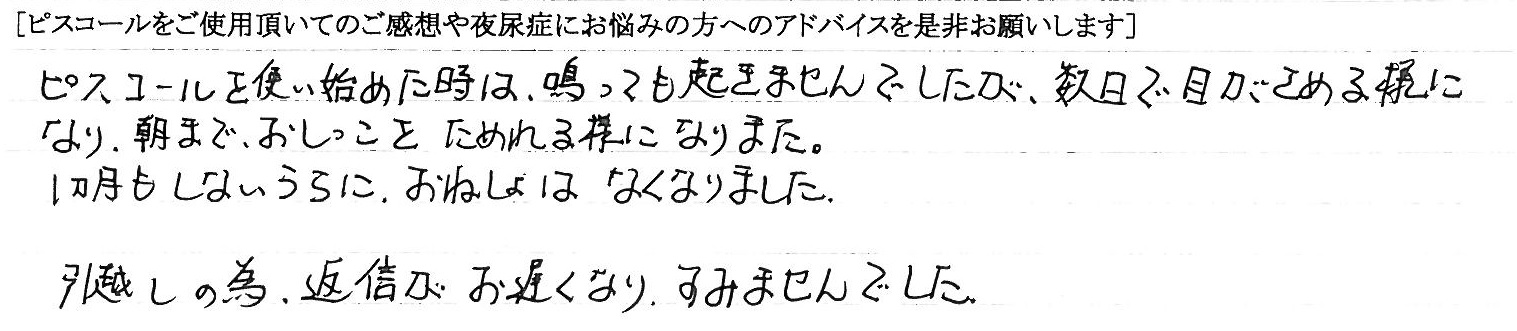 [ピスコールをご使用頂いてのご感想や夜尿症にお悩みの方へのアドバイスを是非お願いします]
ピスコールを使い始めた時は、鳴っても起きませんでしたが、数日で目がさめる様に
なり、朝まで、おしっこを ためれる様に なりまた。
1ヵ月もしないうちに、おねしょは なくなりました。
引越しの為、返信が お遅くなり、すみませんでした。